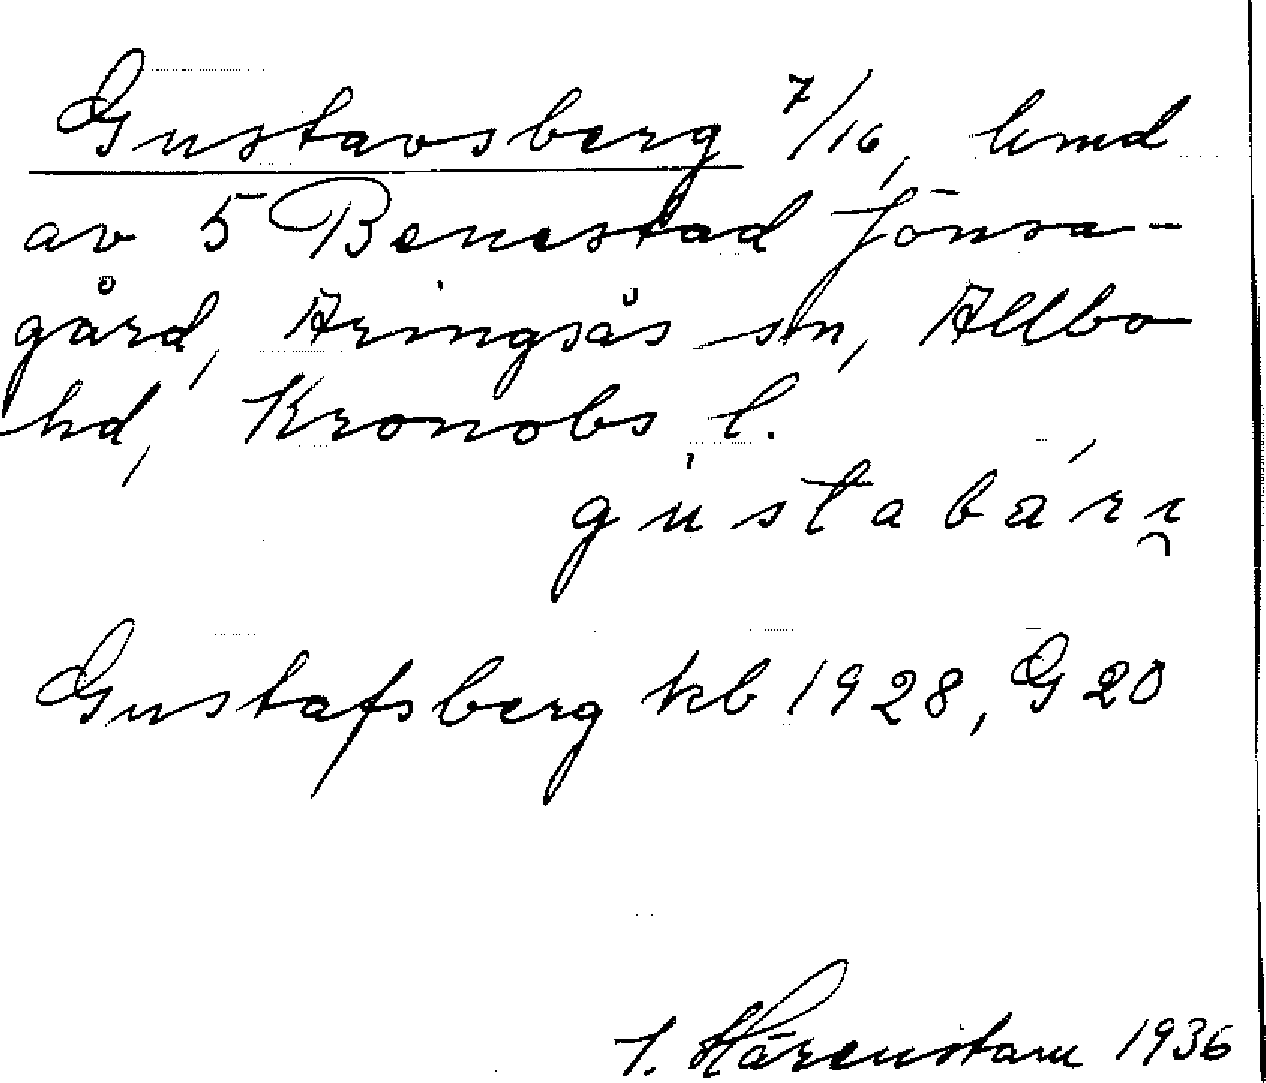 Gustavsberg 7/16, lmd
av 5 Benestad Jönsa-
gård, Aringsås sn, Allbo
hd, Kronobs l.
gustabárɪ̯
Gustafsberg kb 1928, G 20
1936